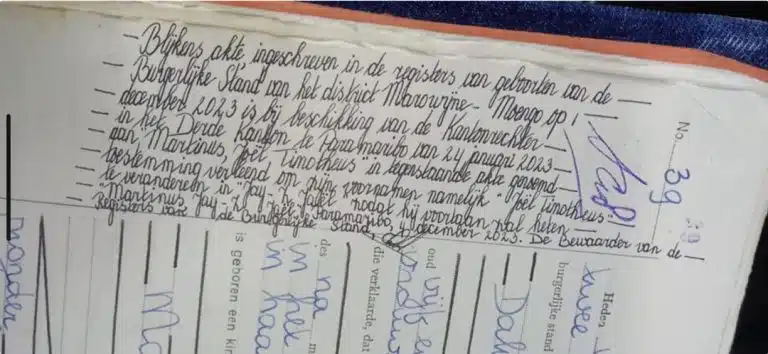 Blijkens akte, ingeschreven in de registers van geboorten van de
Burgerlijke Stand van het district Marowijne - Moengo op 1
december 2023 is bij beschikking van de Kantonrechter
in het Derde Kanton te Paramaribo van 24 januari 2023
aan "Martinus, Joël Timotheus" in tegenstaande akte genoemd
toestemming verleend om zijn voornamen namelijk "Joël Timotheus"
te veranderen in "Jay- zodat hij voortaan zal heten
"Martinus Jay- Paramaribo, 1 december 2023. De Bewaarder van de
Registers van de Burgerlijke Stand,
No. 39
39
Heden
twee
burgerlijke stand
oud vijf en
die verklaarde, dat
des na
in het
in haa
is geboren een kin